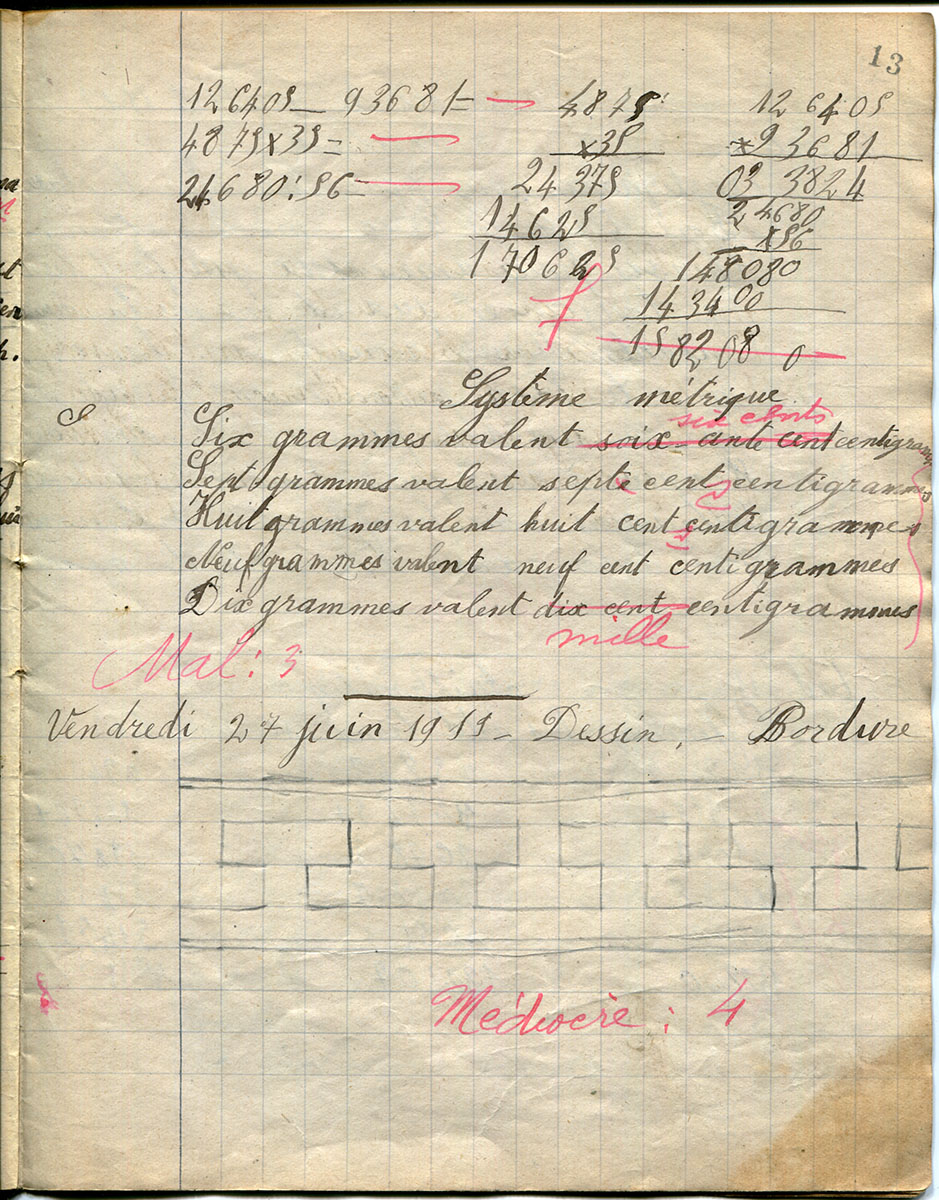 13
126405 - 93681 =
4875 x 35 =
24680 : 56 =
4875
x 35
24375
14625
170625
126405
- 93681
03 3824
24680
x 56
148080
143400
1582080
Système métrique
six cents
Six grammes valent soix-ante cent centigrammes
Sept grammes valent septe cent centigrammes
Huit grammes valent huit cent centigrammes
Neuf grammes valent neuf cent centigrammes
Dix grammes valent dix cent centigrammes
mille
Mal : 3
Vendredi 27 juin 1911 - Dessin. - Bordure
Médiocre : 4